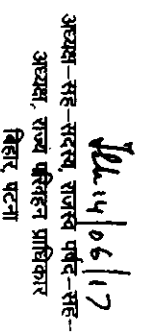 14/06/17
अध्यक्ष-सह-सदस्य, राजस्व पर्षद-सह-
अध्यक्ष, राज्य परिवहन प्राधिकार
बिहार, पटना